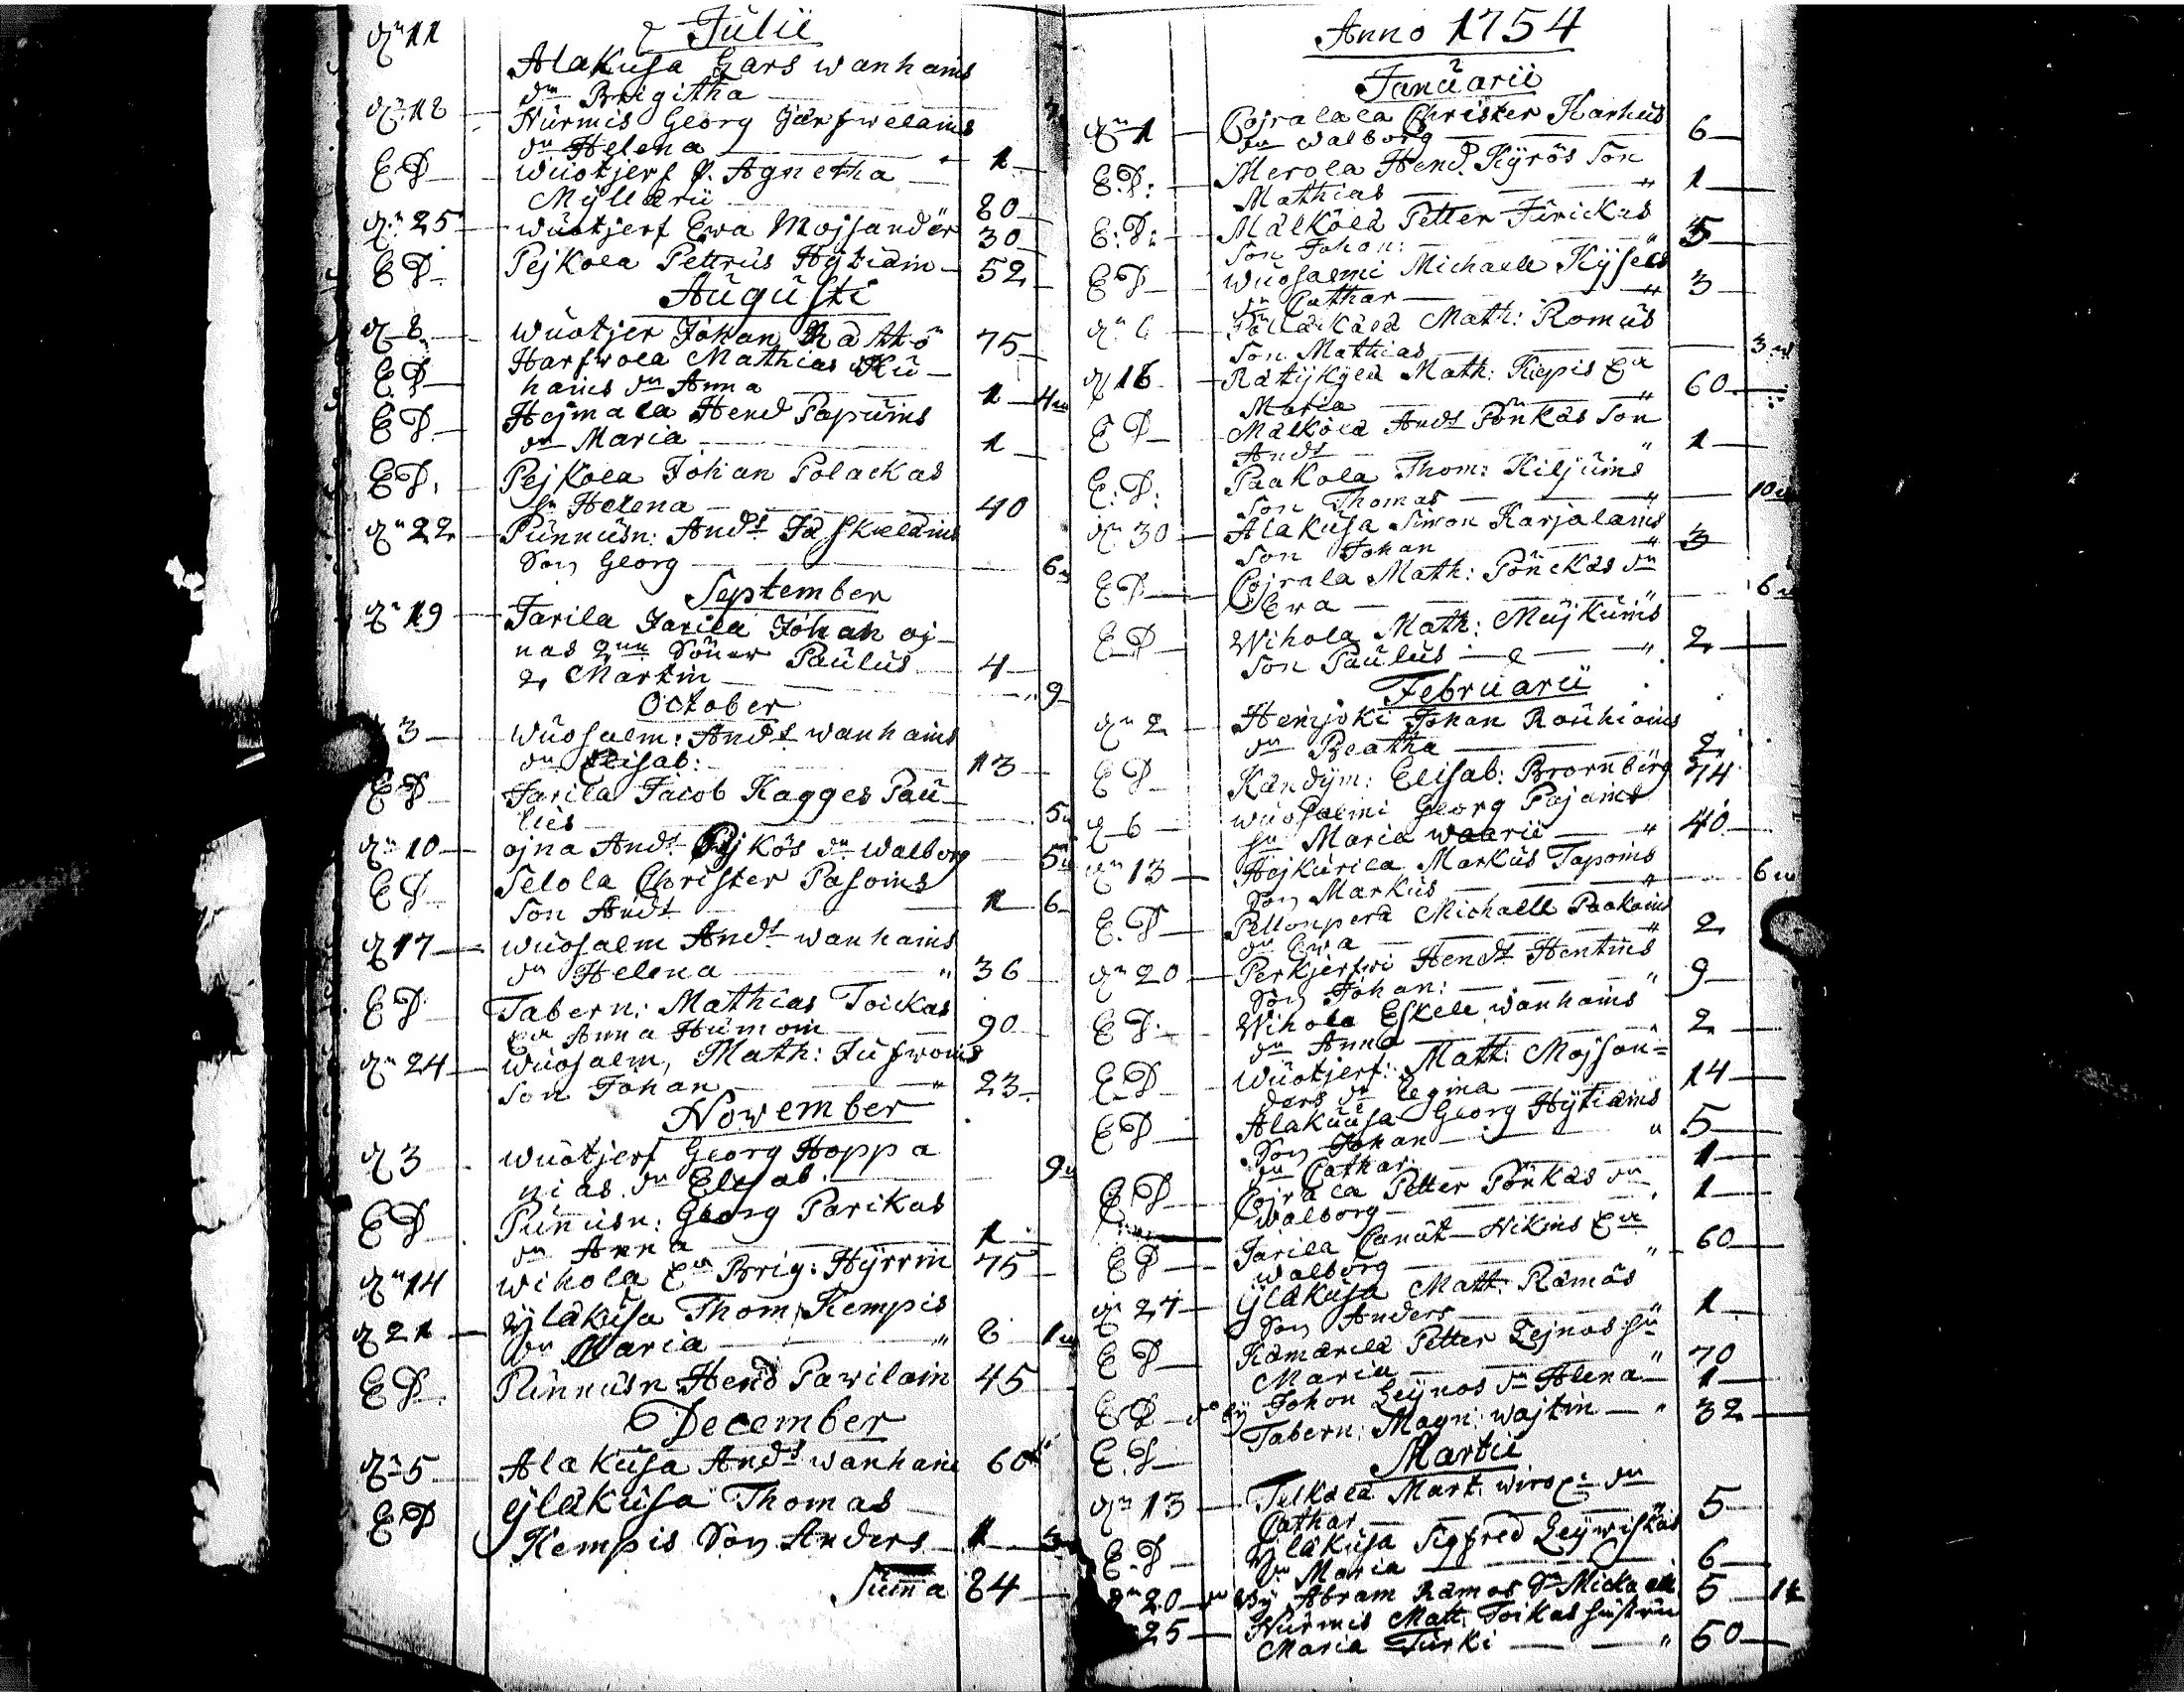 Julii
dn 11
Alakusa Lars wanhains
dn Brigitha
dn 12 Nürmis Georg Järfwelains
dn Helena 1
E D wüotjerf P. Agnetha
Mÿllarii 80
dn 25 wüotjerf Ewa Mojsandär 30
E D Pejkola Pettrus Hÿtiäin 52
Augusti
d 8 wüotjer Johan Rättö 75
Harfwola Mathias Kü-
E D hains dn Anna 1 4
E D Hejmala Hend Papuins
dn Maria 1
E D. Pejkola Johan Polackas
hu Helena 40
dn 22 Pünnüsn: Ands Jäskeläins
Son Georg 6
September
dn 19 Jarila Jarila Johan oj-
nas 2ne Söner Paulus 4
& Martin 9
October
3 wüosalm: Ands wanhains
dn Elisab: 13
E D Jarila Jacob Kagges Pau-
lus 5
dn 10 ojna Ands Pÿkös dn walborg 5
E D Selola Christer Pasoins
Son Ands 1 6
d 17 wüosalm Ands wanhains
dn Helena " 36
E D Tabern: Mathias Toickas
Ea Anna Humoin 90
dn 24 wüosalm, Math: Jufwoins
Son Johan " 23
Nowember
d 3 wüotjerf Georg Hoppa
nias dn Elisab. 9
E D Pünnüsn: Georg Parikas
dn Anna 1
dn 14 wihola Ea Brig: Hÿrrin 75
d 21 ÿläkusa Thom: Kempis
dn Maria " 8 1
E D. Pünnüsn Hend Pawilain 45
December
dn 5 Alakusa Ands wanhain 60
E D ÿläkusa Thomas
Kempis Son Anders 1 3
Summa 84
Anno 1754
Januarii
dn 1 Pojralala Christer Karhus
dn walborg 6
E.D: Merola Hend. Kÿrös Son
Mathias " 1
E:D: Mälkölä Petter Jürickas
Son Johan: " 5
E D wüosalmi Michaell Kÿsels
dn Cathar " 3
dn 6 Pölläkälä Math: Romus
Son Mathias 3
d 16 Rätÿkÿlä Math: Kiepis Ea
Maria " 60
E D Mälkölä Ands Pönkäs Son
Ands " 1
E:D: Paakola Thom: Kiljuins
Son Thomas " 10
dn 30 Alakusa Simon Karjalains
Son Johan " 3
E D Pojrala Math: Pönckäs dn
Ewa " 6
E D Wihola Math: Müjküins
Son Paulus " 2
Februarii
dn 2 Heinjoki Johan Rouhiains
dn Beatha 2
E D Kandÿm: Elisab: Brornbürg 74
d 6 wüosalmi Georg Pajains
hu Maria waarii " 40
dn 13 Hejkurila Markus Tapoins
Son Markus " 6
E.D Pellonperä Michaell Paakoins
dn Ewa " 2
dn 20 Perkjerfwi Hends Hentins
Son Johan: " 9
E D. Wihola Eskell wanhains
dn Anna " 2
E.D wüotjerf: Math: Mojson-
ders dn Regina 14
E D Alakuusa Georg Hÿtiäins
Son Johan " 5
dn Cathar: 1
E D Pojrala Petter Pönkäs dn
walborg 1
E D Jarila Canut Nikins Ea
walborg " 60
dn 24 ÿläkusa Matt: Rämäs
Son Anders " 1
E D Kämärilä Petter Lejnos hu
Maria " 70
E D do bÿ Johon Leÿnos dn Hlena 1
E.D Tabern: Magn: wajtin " 32
Martii
dn 13 Telkälä Mart: wiro dn
Cathar 5
E.D ÿläkusa Sigfred Leÿwiskäs
dn Maria 6
dn 20 do bÿ Abram Rämos Sn Mickaell 5 1
25 Nürmis Matt: Toikas hustrü
Maria Türki " 50